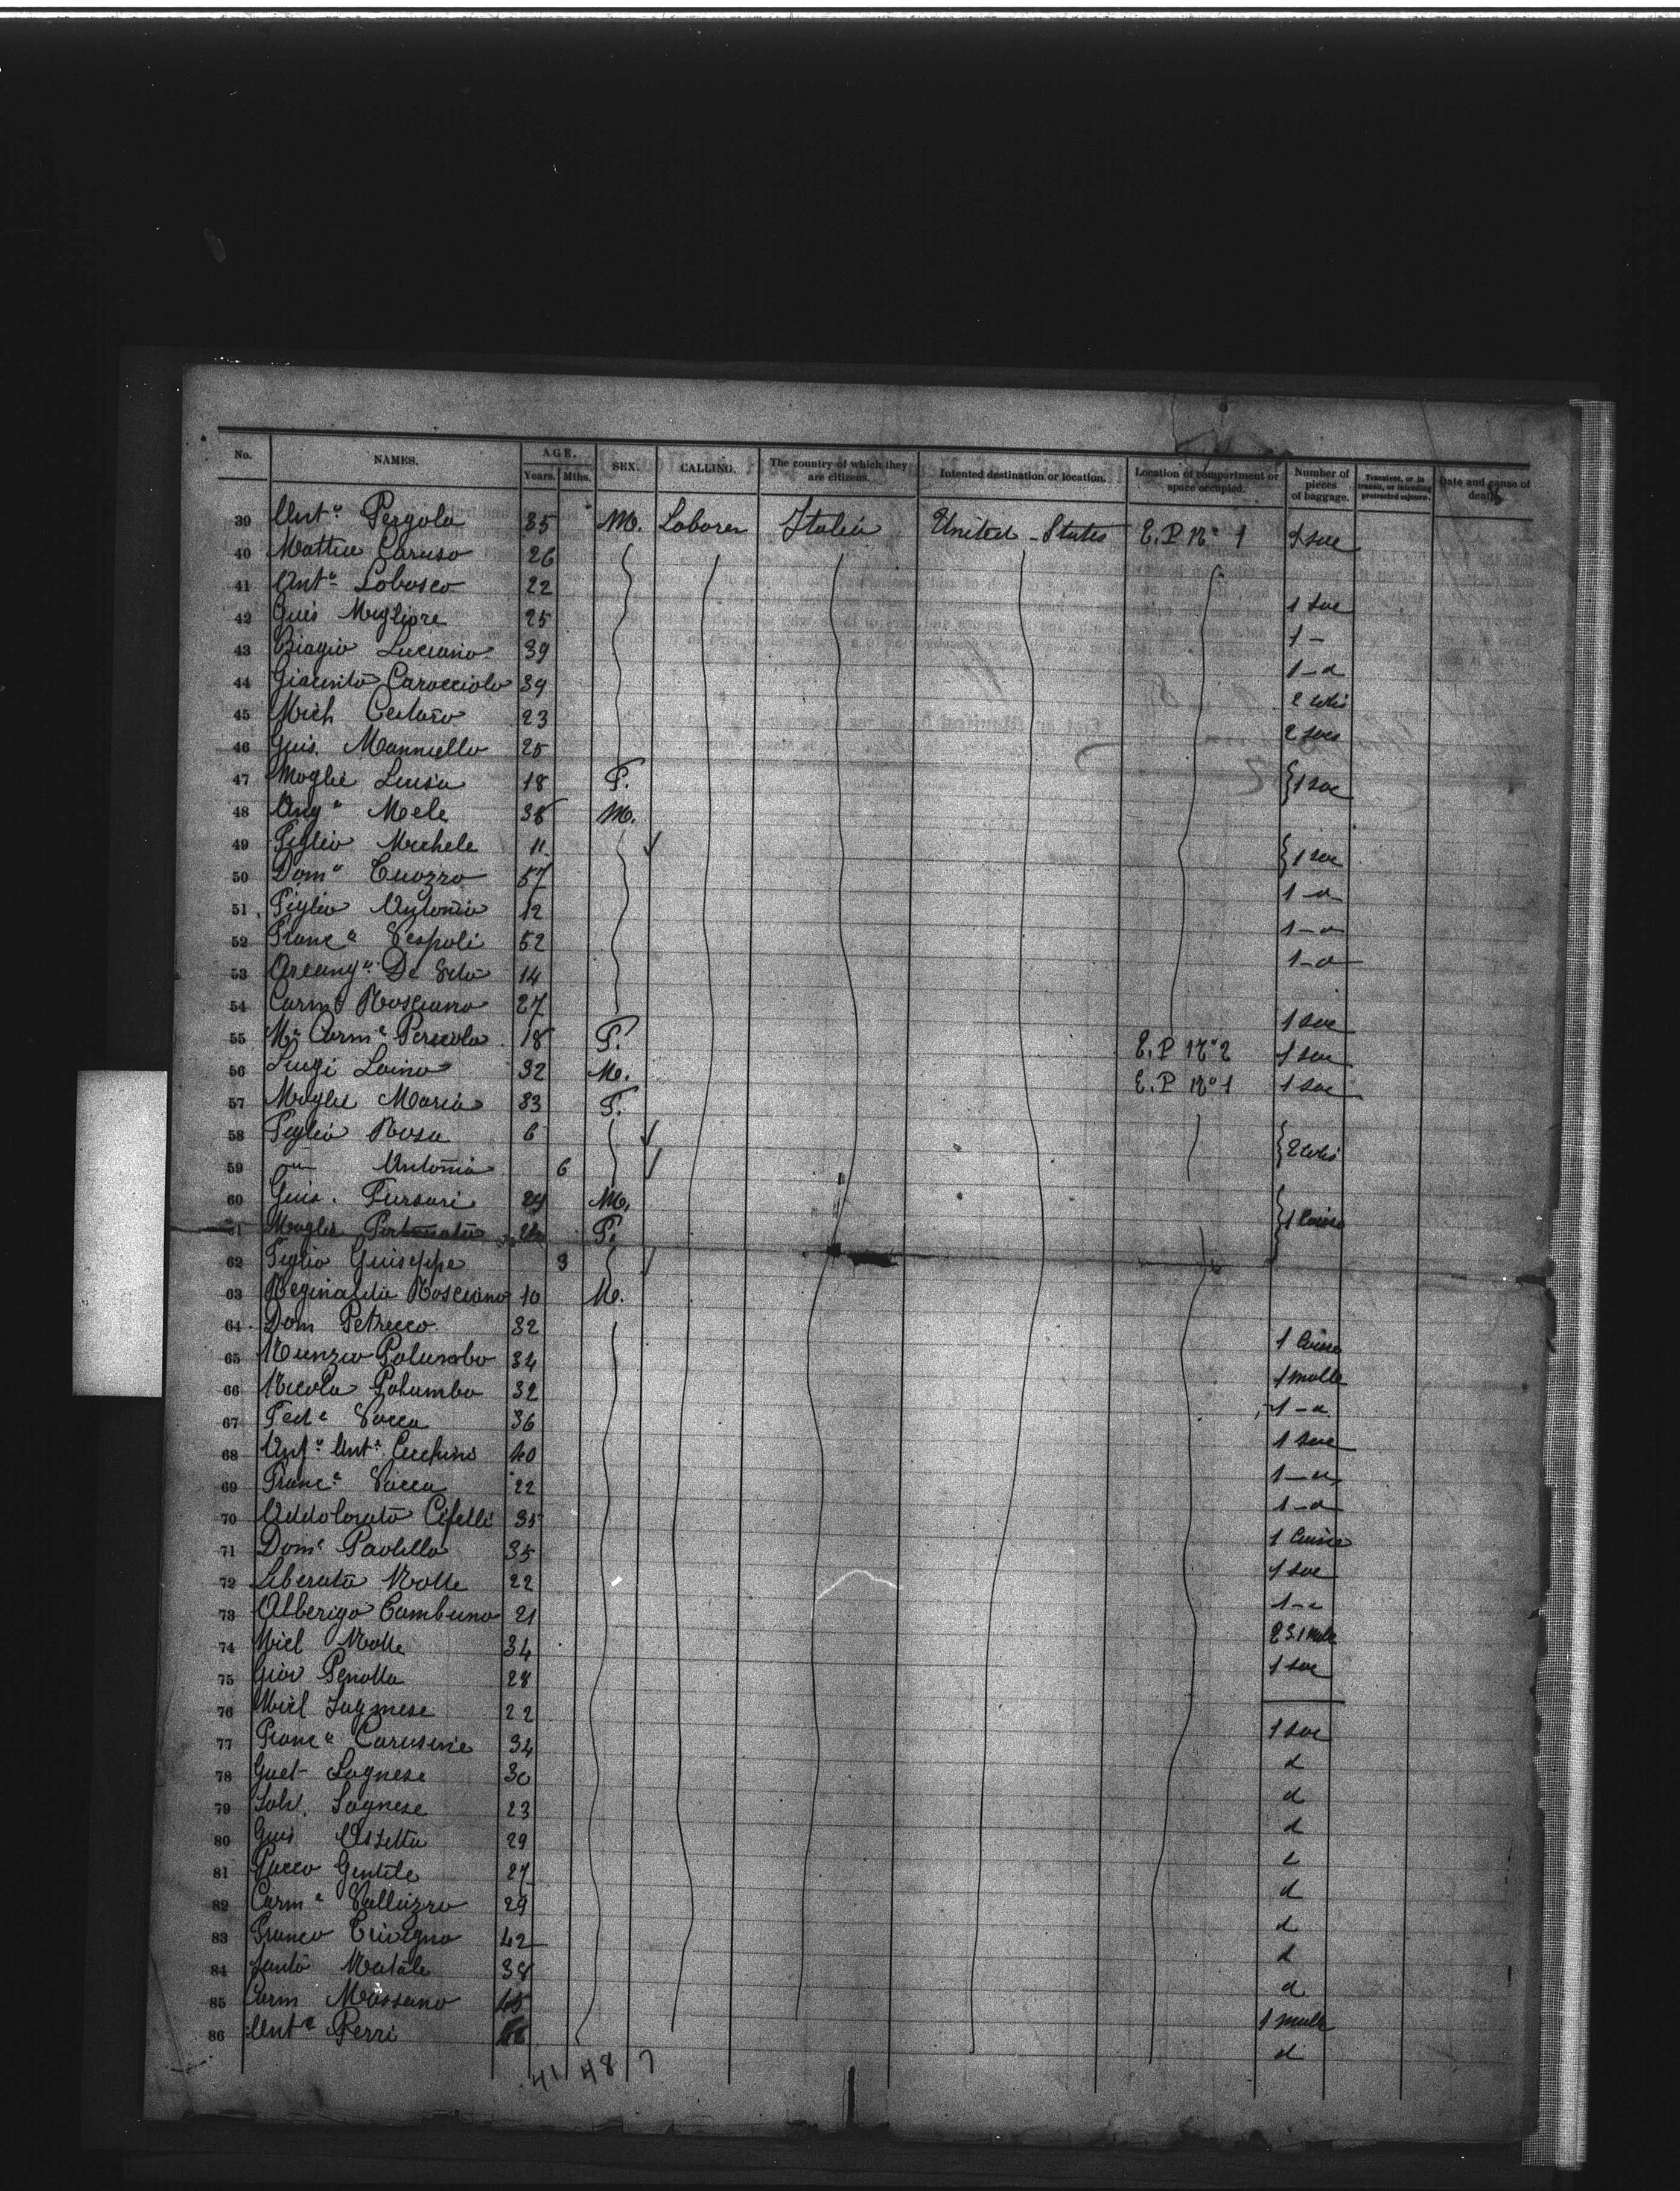 No. NAMES. AGE. Years. Mths. SEX. CALLING. The country of which they are citizens. Intented destination or location. Location of compartment or space occupied. Number of pieces of baggage. Transient, or in transit, or intending protracted sojourn. Date and cause of death.
39 Antº Pergola 35 M. Laborer Italia United States E.P Nº 1 1 sac
40 Matteo Caruso 26
41 Antº Lobosco 22 1 sac
42 Guis Migliore 25 1 -
43 Biagio Luciano 39 1 - d
44 Giacinto Caracciolo 39 2 colis
45 Mich 23 2 sacs
46 Guis. Manniello 25
47 Moglie Luisa 18 F. 1 sac
48 Angº Mele 38 M.
49 Figlio Michele 11 1 sac
50 Domº Cuozzo 57 1 - d
51 Figlio Antonio 12 1 - d
52 Francº Vespoli 52 1 - d
53 Arcangº De Vito 14
54 Carmº Rosciano 27 1 sac
55 Mª Carmª 18 F. E.P Nº 2 1 sac
56 Luigi Laino 32 M. E.P Nº 1 1 sac
57 Moglie Maria 33 F.
58 Figlia Rosa 6 2 colis
59 Antonia 6
60 Guis. M. 1 caisse
61 Moglie Fortunata F.
62 Figlio Guiseppe 3
63 Reginalda Rosciano 10 M.
64 Dom Petrecco 32 1 caisse
65 Nunzio Palumbo 34 1 malle
66 Nicola Palumbo 32 1 - d
67 Fedº Vacca 36 1 sac
68 Antº 40 1 - d
69 Francº Vacca 22 1 - d
70 Addolorato Cifelli 35 1 caisse
71 Domº Paolella 35 1 sac
72 Liberato Notte 22 1 - d
73 Alberigo 21
74 Micl Notte 34 1 sac
75 Giov 28
76 Micl 22 1 sac
77 Francº 34 d
78 Gaet Lagnese 30 d
79 Salv. Lagnese 23 d
80 Guis 29 d
81 Rocco Gentile 27 d
82 Carmº Valluzzo 29 d
83 Franco Trivigno 42 d
84 Santo Natale 38 d
85 Carm Massano 45 1 malle
86 Antº Perri d
41 48 7